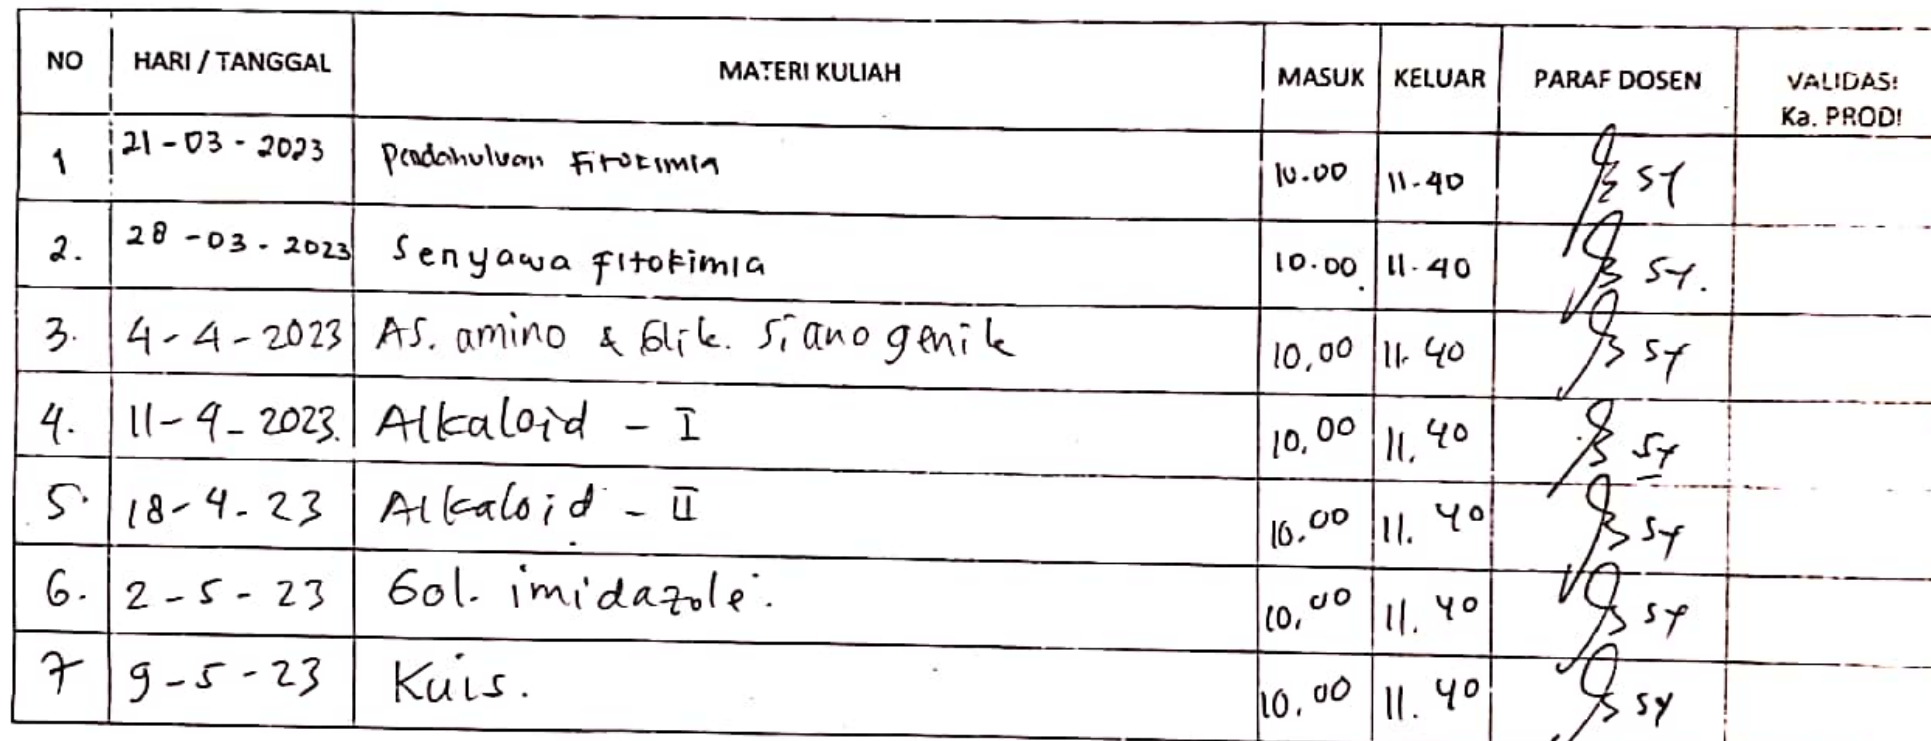 NO HARI / TANGGAL MATERI KULIAH MASUK KELUAR PARAF DOSEN VALIDASI
Ka. PRODI
1 21-03-2023 Pendahuluan Fitokimia 10.00 11.40 sy
2. 28-03-2023 Senyawa Fitokimia 10.00 11.40 sy.
3. 4-4-2023 AS. amino & Glik. Sianogenik 10,00 11.40 sy
4. 11-4-2023. Alkaloid - I 10,00 11.40 sy
5. 18-4-23 Alkaloid - II 10.00 11.40 sy
6. 2-5-23 Gol. imidazole. 10,00 11.40 sy
7 9-5-23 Kuis. 10.00 11.40 sy